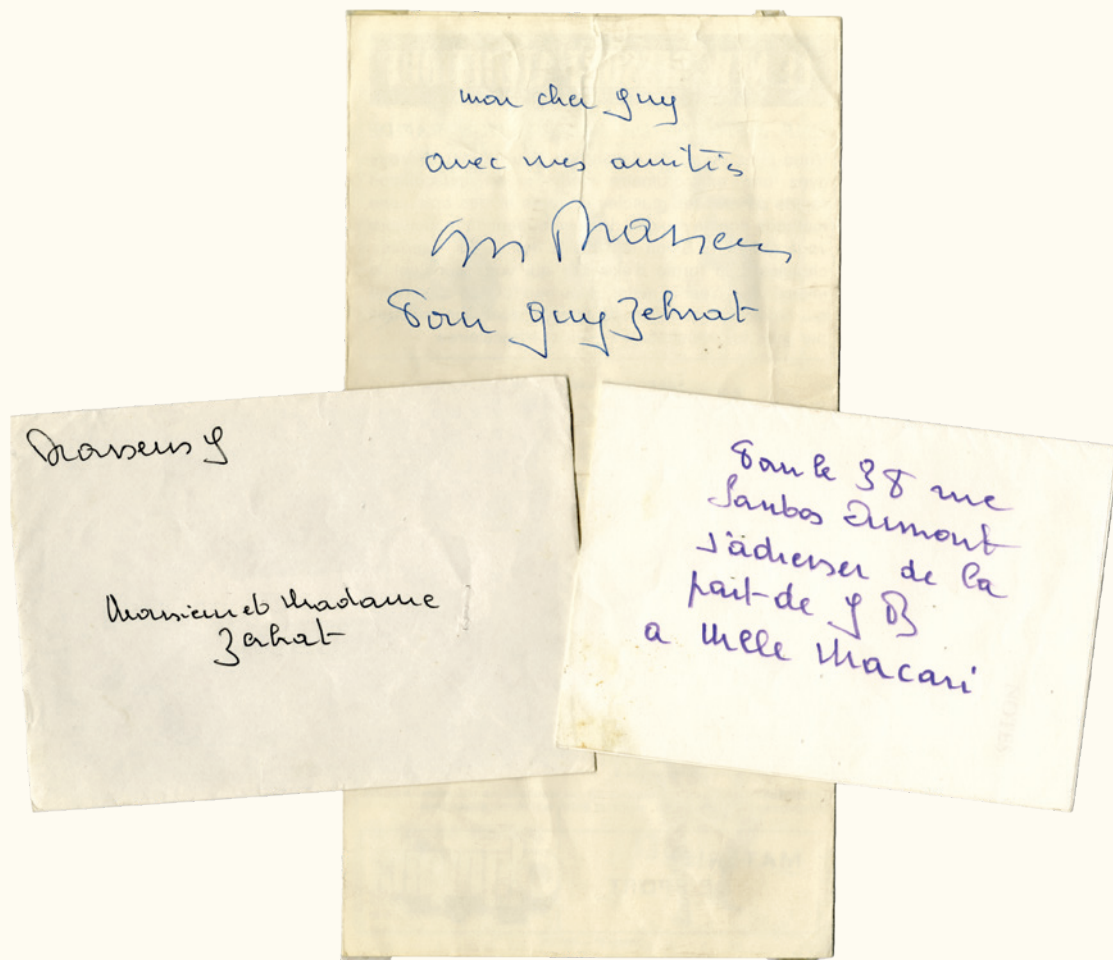 mon cher guy
avec mes amitiés
Brassens
Pour guy Zehrat
Brassens G
Monsieur et Madame
Zehrat
Pour le 38 rue
Santos Dumont
s'adresser de la
part de G B
a Melle Macari